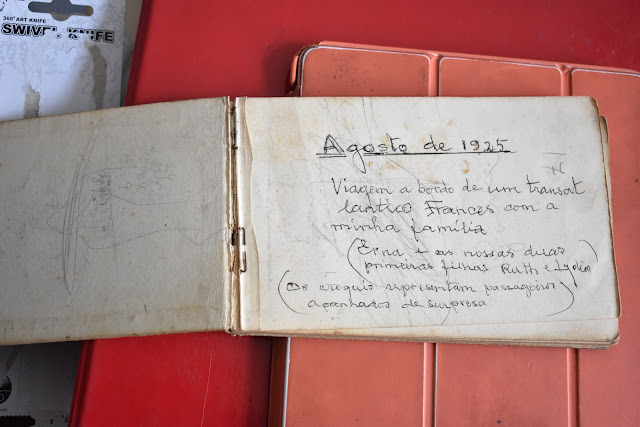 360° ART KNIFE
SWIVEL KNIFE
Agosto de 1925
Viagem a bordo de um transat
lantico Francês com a
minha familia
(Erna + as nossas duas
primeiras filhas Ruth e Lydia)
(Os croquis representam passageiros
apanhados de surpresa)